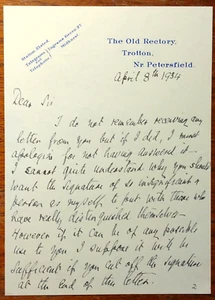 Station Elsted
Telegrams
Telephone
Midhurst
The Old Rectory,
Trotton,
Nr Petersfield.
April 8th 1934
Dear Sir
I do not remember receiving any
letter from you but if I did, I must
apologise for not having answered it -
I cannot quite understand why you should
want the signature of so insignificant a
person as myself to put with those who
have really distinguished themselves -
However if it can be of any possible
use to you I suppose it will be
sufficient if you cut off the signature
at the end of this letter.
2